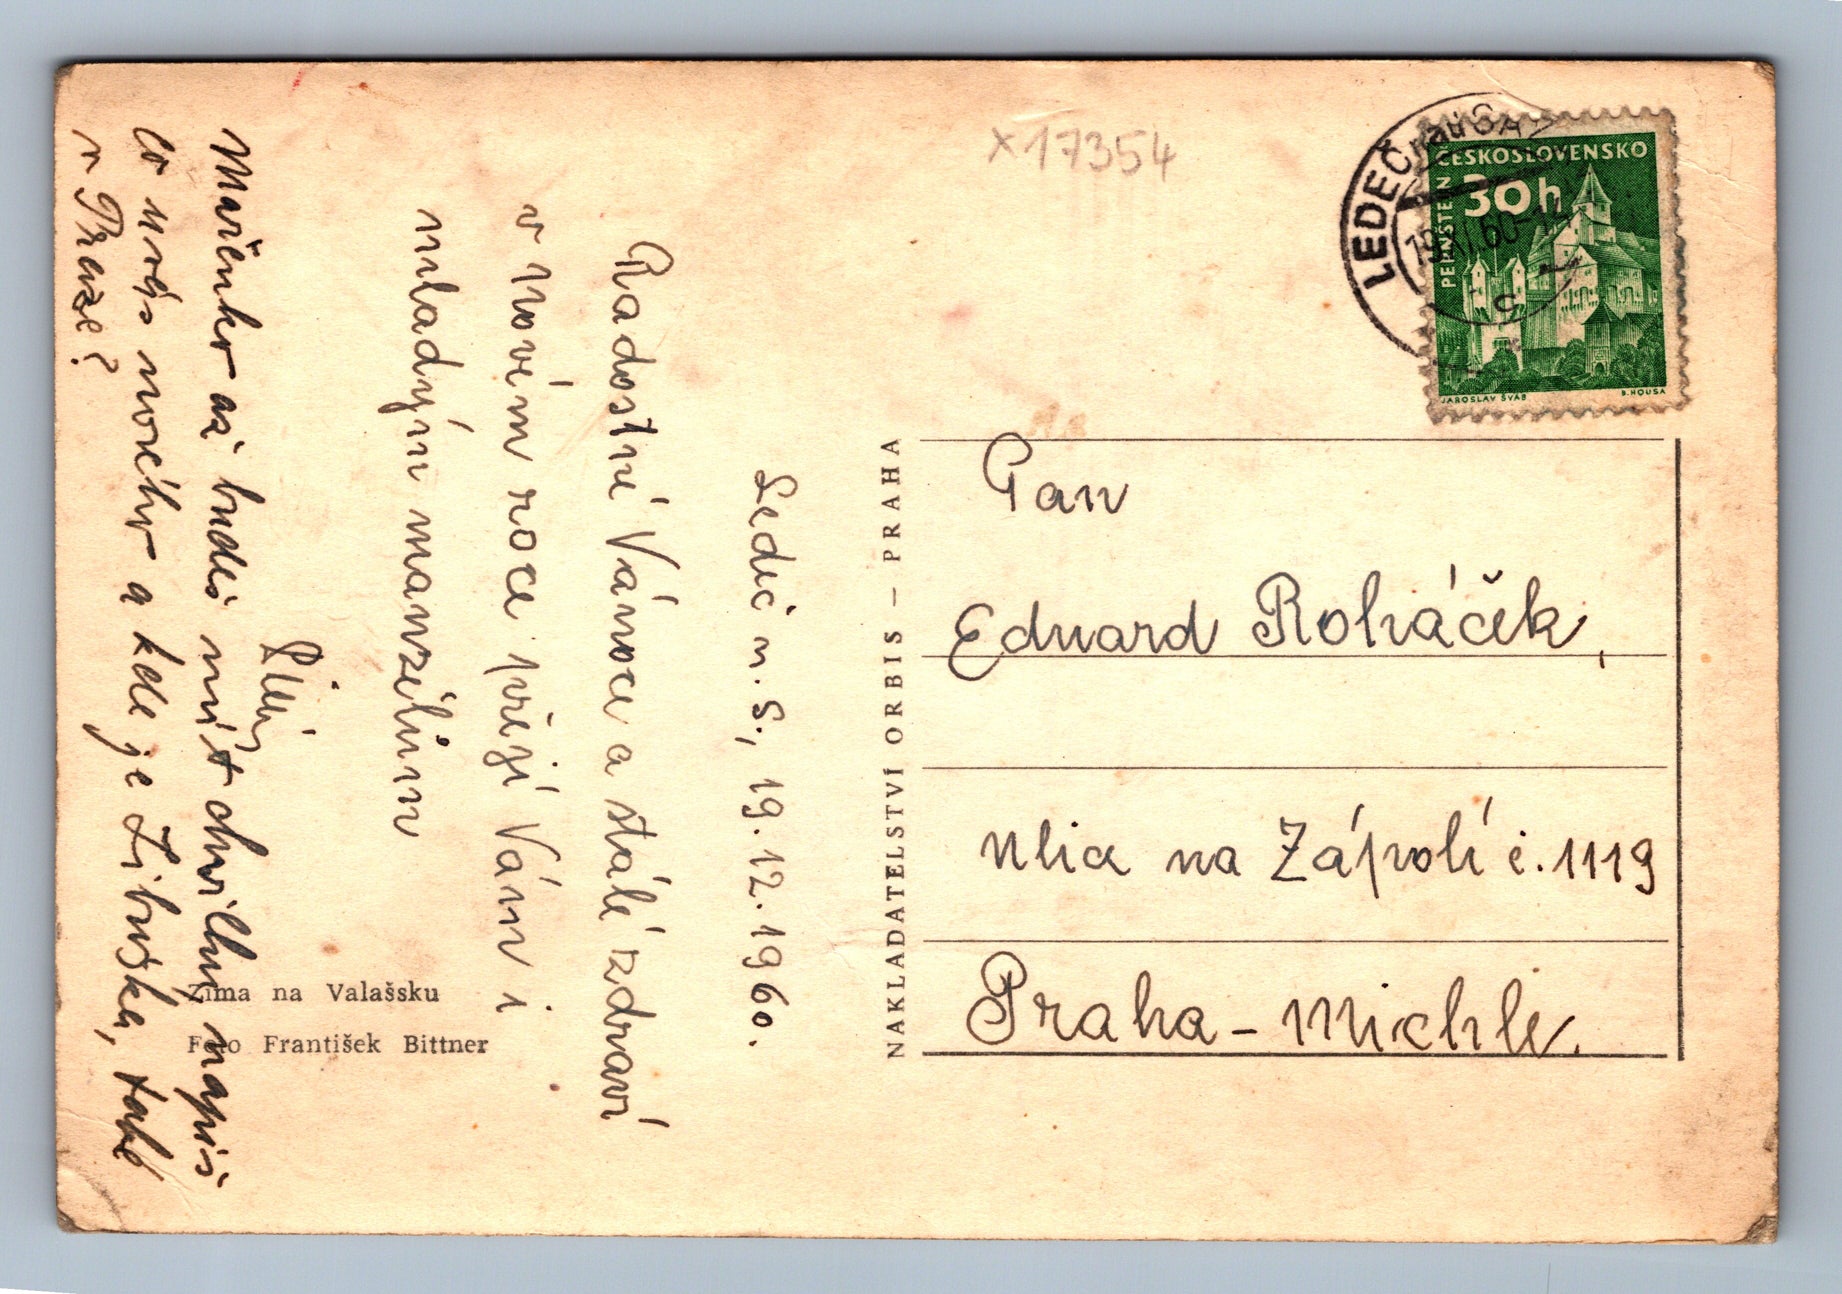 x 17354
LEDEČ nad SÁZ
19.XI.60-14
C
ČESKOSLOVENSKO
30h
PERNŠTEJN
JAROSLAV ŠVÁB
B. HOUSA
Ledeč n. S., 19.12.1960.
Radostné Vánoce a stálé zdraví
v novém roce přejí Vám i
mladým manželům
Mařenko až budeš mít chvilku napiš
co uvás nového a kde je Libuška, také
v Praze?
Zima na Valašsku
Foto František Bittner
NAKLADATELSTVÍ ORBIS – PRAHA
Pan
Eduard Roháček,
ulice na Zápolí č. 1119
Praha – Michle.